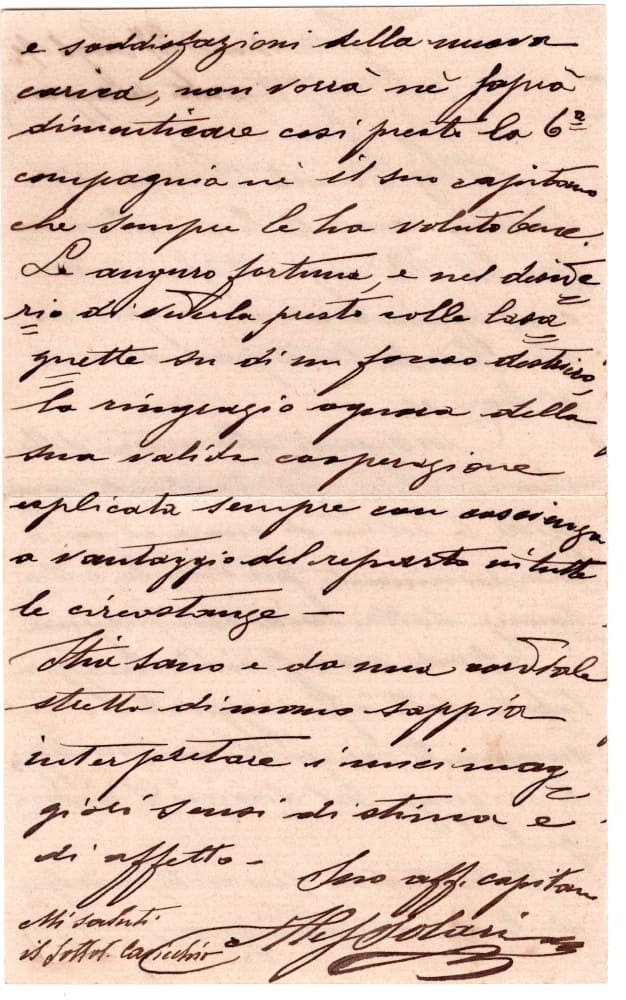 e soddisfazioni della nuova
carica, non vorrà nè saprà
dimenticare così presto la 6ª
compagnia nè il suo capitano
che sempre le ha voluto bene.
Le auguro fortuna, e nel deside=
rio di vederla presto colle
su di un focoso destriero,
la ringrazio ognora della
sua valida cooperazione
esplicata sempre con coscienza
a vantaggio del reparto in tutte
le circostanze –
Stia sano e da una cordiale
stretta di mano sappia
interpretare i miei mag=
giori sensi di stima e
di affetto –
Suo aff. capitano
Mi saluti
il sottot.